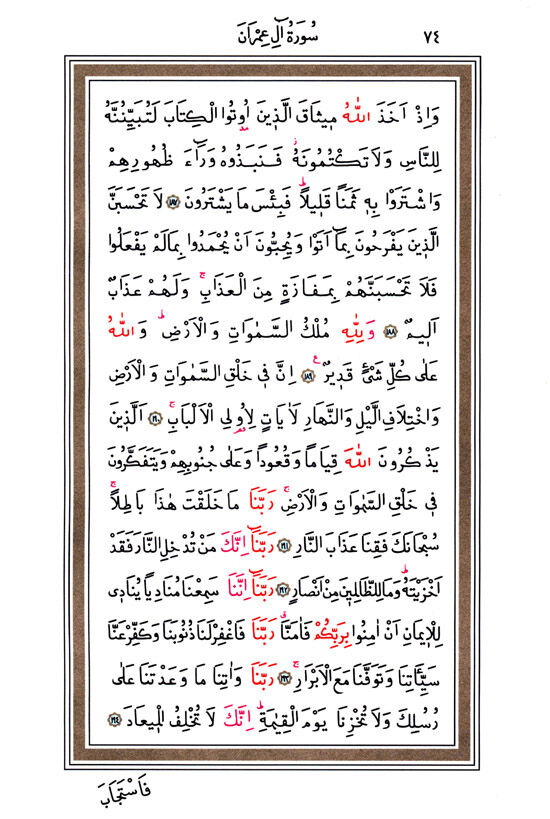 ٧٤ سُورَةُ اٰلِ عِمْرٰنَ
وَاِذْ اَخَذَ اللّٰهُ م۪يثَاقَ الَّذ۪ينَ اُو۫تُوا الْكِتَابَ لَتُبَيِّنُنَّهُ
لِلنَّاسِ وَلَا تَكْتُمُونَهُۘ فَنَبَذُوهُ وَرَٓاءَ ظُهُورِهِمْ
وَاشْتَرَوْا بِه۪ ثَمَنًا قَل۪يلًاۜ فَبِئْسَ مَا يَشْتَرُونَ ﴿١٨٧﴾ لَا تَحْسَبَنَّ
الَّذ۪ينَ يَفْرَحُونَ بِمَٓا اَتَوْا وَيُحِبُّونَ اَنْ يُحْمَدُوا بِمَا لَمْ يَفْعَلُوا
فَلَا تَحْسَبَنَّهُمْ بِمَفَازَةٍ مِنَ الْعَذَابِۚ وَلَهُمْ عَذَابٌ
اَل۪يمٌ ﴿١٨٨﴾ وَلِلّٰهِ مُلْكُ السَّمٰوَاتِ وَالْاَرْضِۜ وَاللّٰهُ
عَلٰى كُلِّ شَيْءٍ قَد۪يرٌ۟ ﴿١٨٩﴾ اِنَّ ف۪ي خَلْقِ السَّمٰوَاتِ وَالْاَرْضِ
وَاخْتِلَافِ الَّيْلِ وَالنَّهَارِ لَاٰيَاتٍ لِاُو۬لِي الْاَلْبَابِۚ ﴿١٩٠﴾ اَلَّذ۪ينَ
يَذْكُرُونَ اللّٰهَ قِيَامًا وَقُعُودًا وَعَلٰى جُنُوبِهِمْ وَيَتَفَكَّرُونَ
ف۪ي خَلْقِ السَّمٰوَاتِ وَالْاَرْضِۚ رَبَّنَا مَا خَلَقْتَ هٰذَا بَاطِلًاۚ
سُبْحَانَكَ فَقِنَا عَذَابَ النَّارِ ﴿١٩١﴾ رَبَّنَٓا اِنَّكَ مَنْ تُدْخِلِ النَّارَ فَقَدْ
اَخْزَيْتَهُۜ وَمَا لِلظَّالِم۪ينَ مِنْ اَنْصَارٍ ﴿١٩٢﴾ رَبَّنَٓا اِنَّنَا سَمِعْنَا مُنَادِيًا يُنَاد۪ي
لِلْا۪يمَانِ اَنْ اٰمِنُوا بِرَبِّكُمْ فَاٰمَنَّاۗ رَبَّنَا فَاغْفِرْ لَنَا ذُنُوبَنَا وَكَفِّرْ عَنَّا
سَيِّـَٔاتِنَا وَتَوَفَّنَا مَعَ الْاَبْرَارِۚ ﴿١٩٣﴾ رَبَّنَا وَاٰتِنَا مَا وَعَدْتَنَا عَلٰى
رُسُلِكَ وَلَا تُخْزِنَا يَوْمَ الْقِيٰمَةِۜ اِنَّكَ لَا تُخْلِفُ الْم۪يعَادَ ﴿١٩٤﴾
فَاسْتَجَابَ